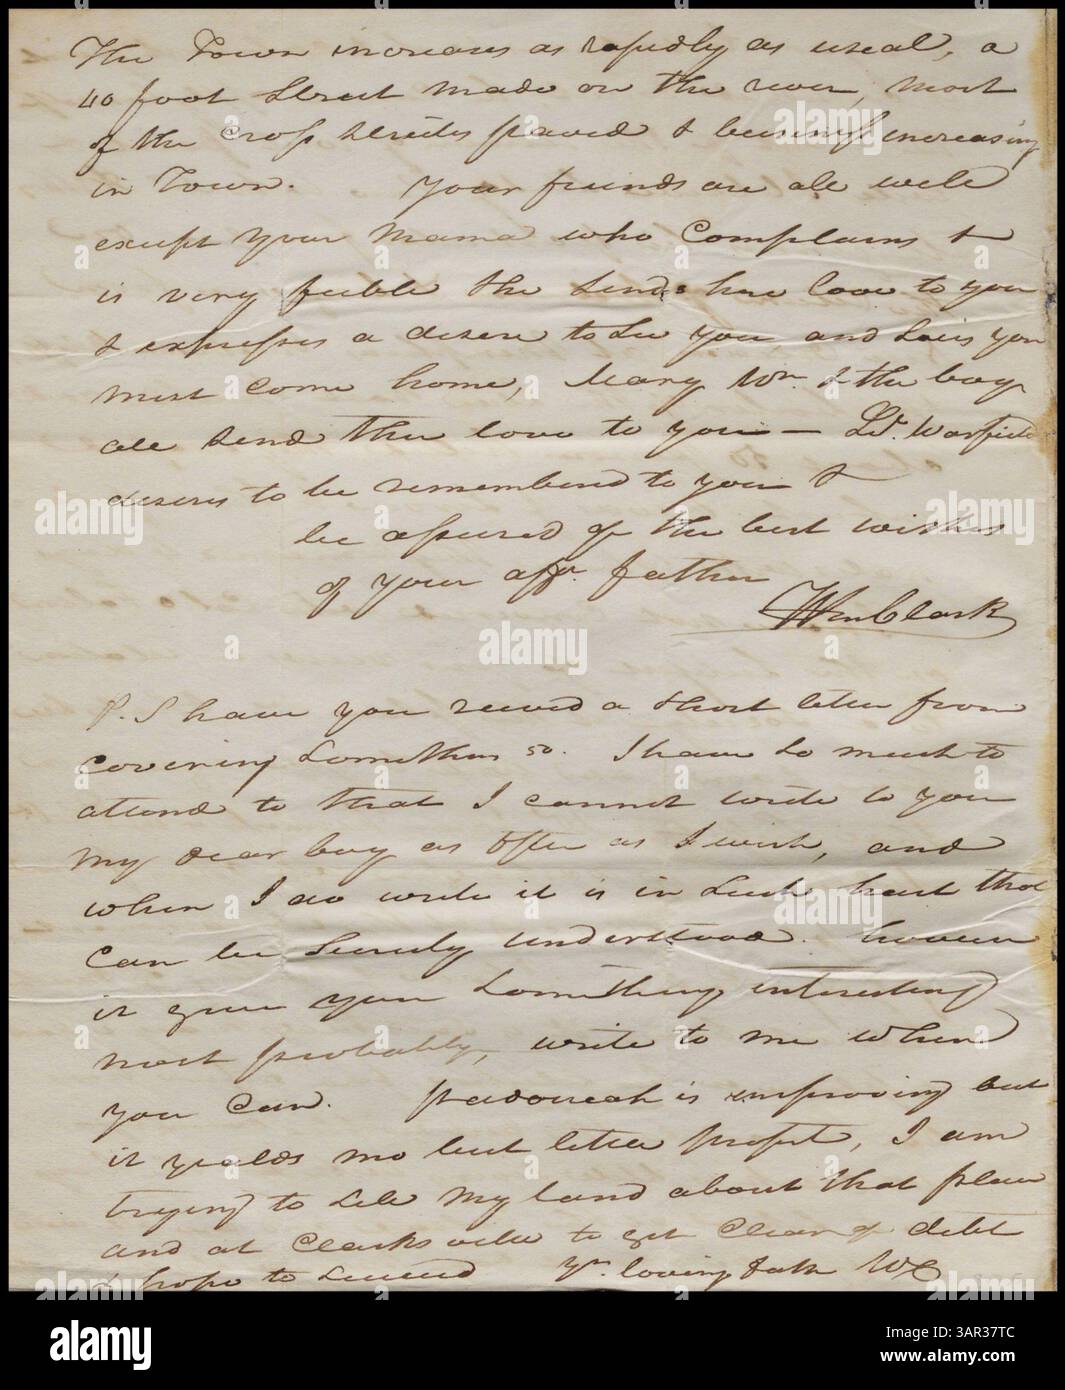 The Town increases as rapidly as useal, a
40 foot Street made on the river, most
of the Cross Streets paved & buisiness increasing
in Town. Your friends are all well
except your Mama who Complains &
is very feeble She Sends her love to you
& expresses a desire to See you and Says you
must come home, Mary Wm. & the boys
all Send their love to you — Dr. Warfield
desires to be remembered to you &
be assured of the best wishes
of your afft. father
Wm Clark
P.S I have you recved a Short letter from
covering Somthing 50. I have So much to
attend to that I cannot write to you
my dear boy as often as I wish, and
when I do write it is in Such hast that
can be Scercely understood. however
it givs you Somthing interesting
most probably, write to me when
you can. padoucah is improving but
it yealds me but little profit, I am
trying to Sell my land about that place
and at Clarksville to get Clear of debt
& hope to Succeed Yr. loving fathr WC
alamy
Image ID: 3AR37TC
www.alamy.com